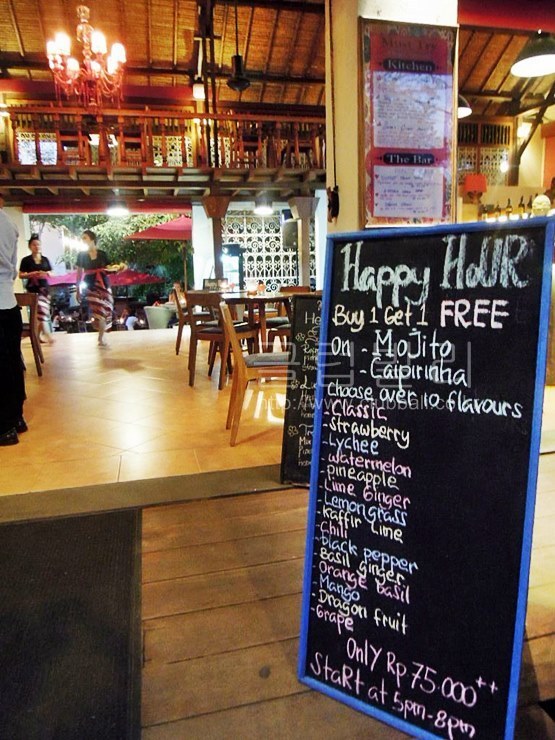 Kitchen
The Bar
Happy HoUR
Buy 1 Get 1 FREE
On - Mojito
- Caipirinha
Choose over 10 flavours
- Classic
- Strawberry
- Lychee
- watermelon
- pineapple
- Lime Ginger
- Lemongrass
- Kaffir Lime
- Chili
- black pepper
- Basil ginger
- Orange Basil
- Mango
- Dragon fruit
- Grape
Only Rp 75.000++
StaRt at 5pm-8pm